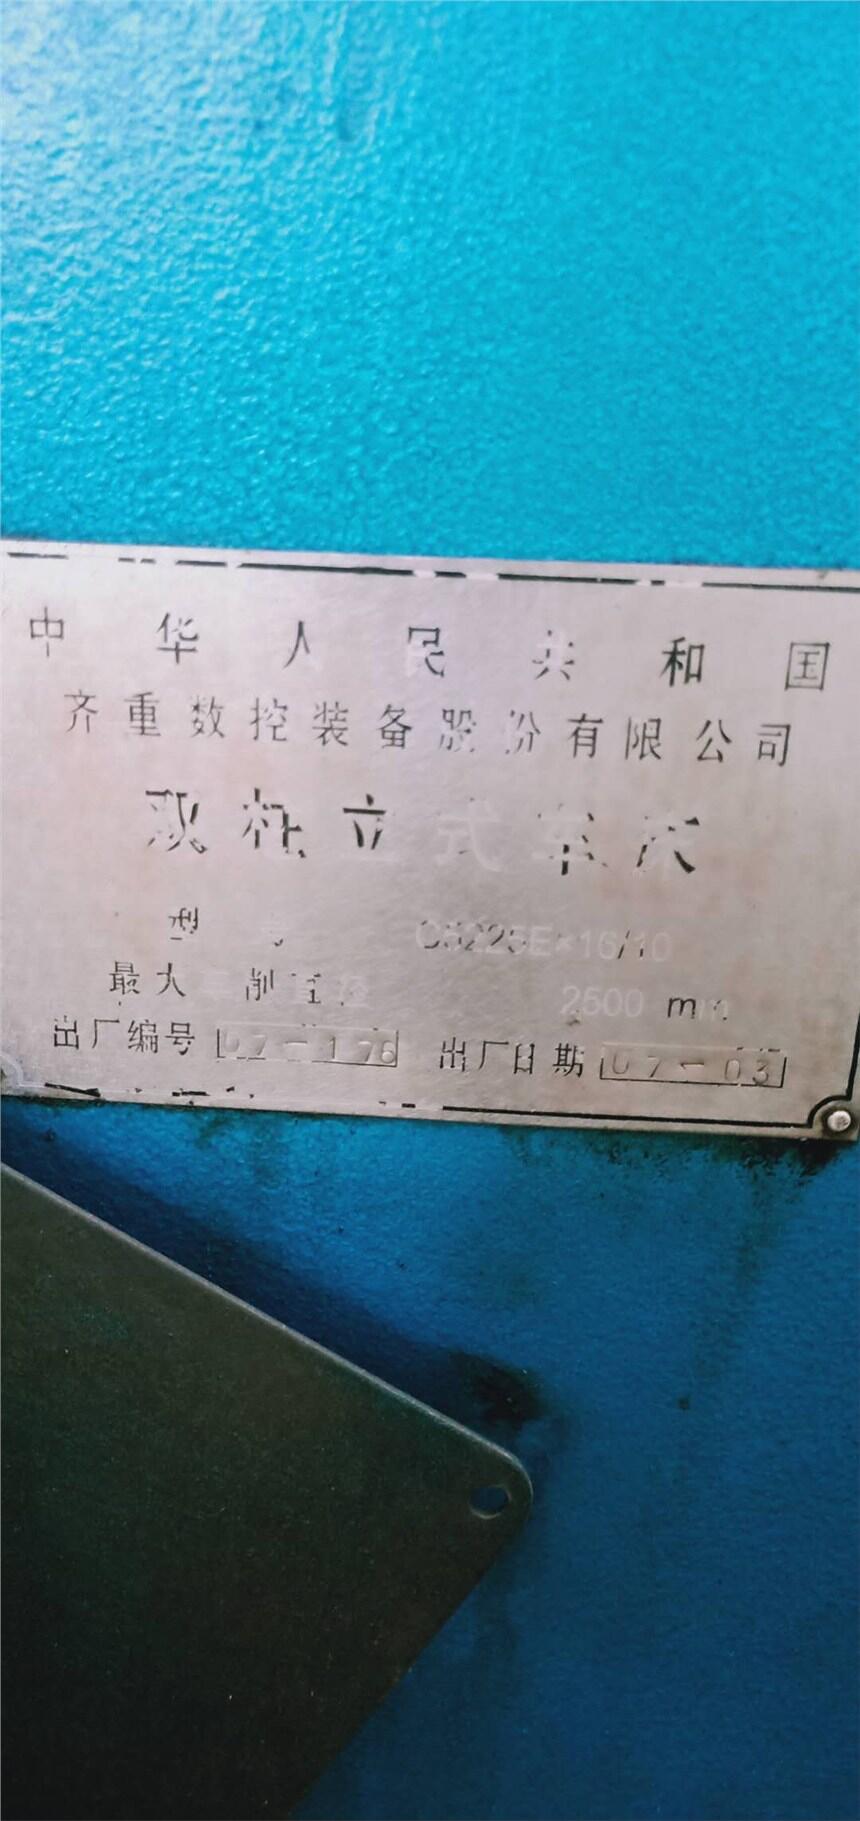 中华人民共和国
齐重数控装备股份有限公司
双柱立式车床
型号 C5225E×16/10
最大车削直径 2500 mm
出厂编号 07-176 出厂日期 07-03